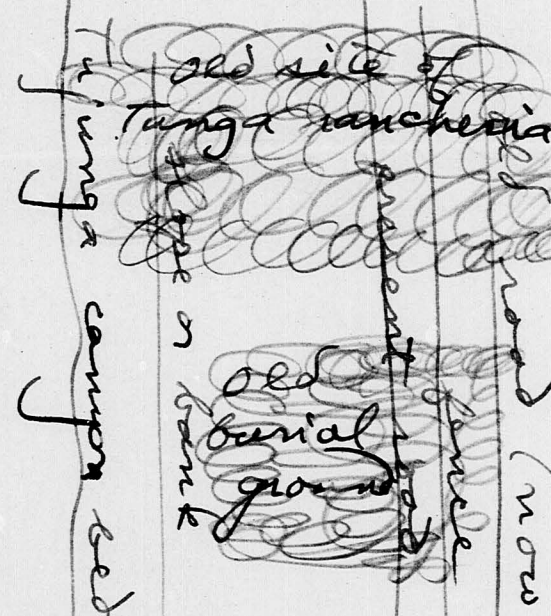 old site of
Tunga rancheria
old
burial
ground
Tujunga canyon bed
steep bank
present road
fence
old road (now